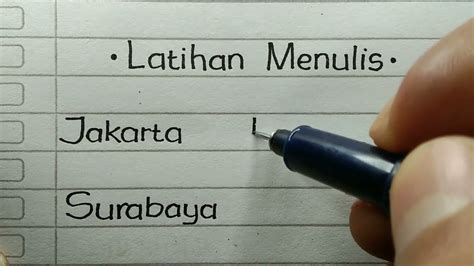 • Latihan Menulis •
Jakarta
Surabaya